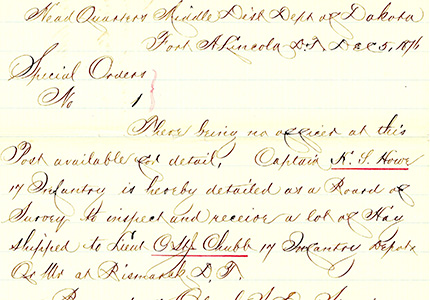 Head Quarters Middle Dist Dept of Dakota
Fort A Lincoln D.T. Dec 5, 1876
Special Orders
No 1
There being no officer at this
Post available for detail, Captain K. S. Howe
17 Infantry is hereby detailed as a Board of
Survey to inspect and receive a lot of Hay
shipped to Lieut Chubb 17 Infantry Depot
Qr Mr at Bismarck D.T.